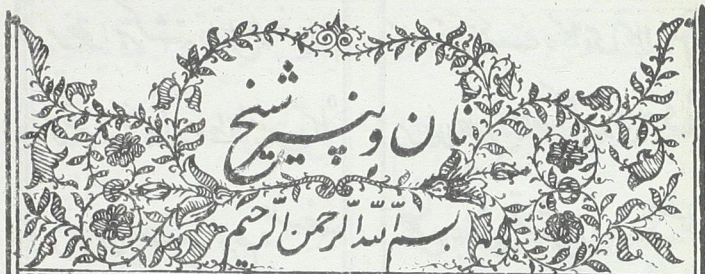 نان و پنیر شیخ
بسم الله الرحمن الرحیم